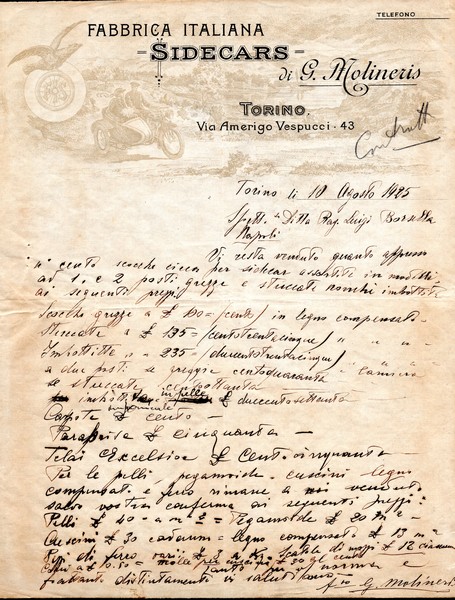 TELEFONO
FABBRICA ITALIANA
SIDECARS
di G. Molineris
TORINO,
Via Amerigo Vespucci - 43
Torino li 10 Agosto 1925
Spett. Ditta Rag. Luigi
Napoli
Vi resta venduto quanto appresso
n° cento scocche circa per sidecar assortite in modelli
ad 1, e 2 posti grezze e stuccate nonché imbottite
ai seguenti prezzi
Scocche grezze a £ 100= (cento) in legno compensato
Stuccate a £ 135= (centotrentacinque) " " "
Imbottite " " 235= (duecentotrentacinque) " " "
a due posti se grezze centoquaranta " lamiera
se stuccate centottanta
imbottite in pelle £ duecentosettanta
£ cento
Parabrise £ cinquanta
Telai Excelsior £ centocinquanta
Per le pelli, pegamoide, cuscini legno
compensati e ferro rimane a noi venduto
salvo vostra conferma ai seguenti prezzi:
Pelli £ 40= a m² = Pegamoide £ 20 m²
Cuscini £ 30 cadauno = legno compensato £ 13 m²
di ferro varii £ 3 a K. scatole di £ 12 ciascuna
a £ 0.50 = molle per cuscini £ 30 al cento
Tanto per norma e
frattanto distintamente vi salutiamo
G. Molineris